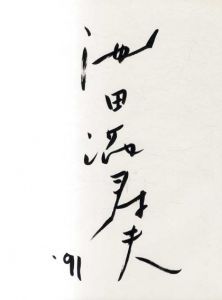 池田満寿夫
'91